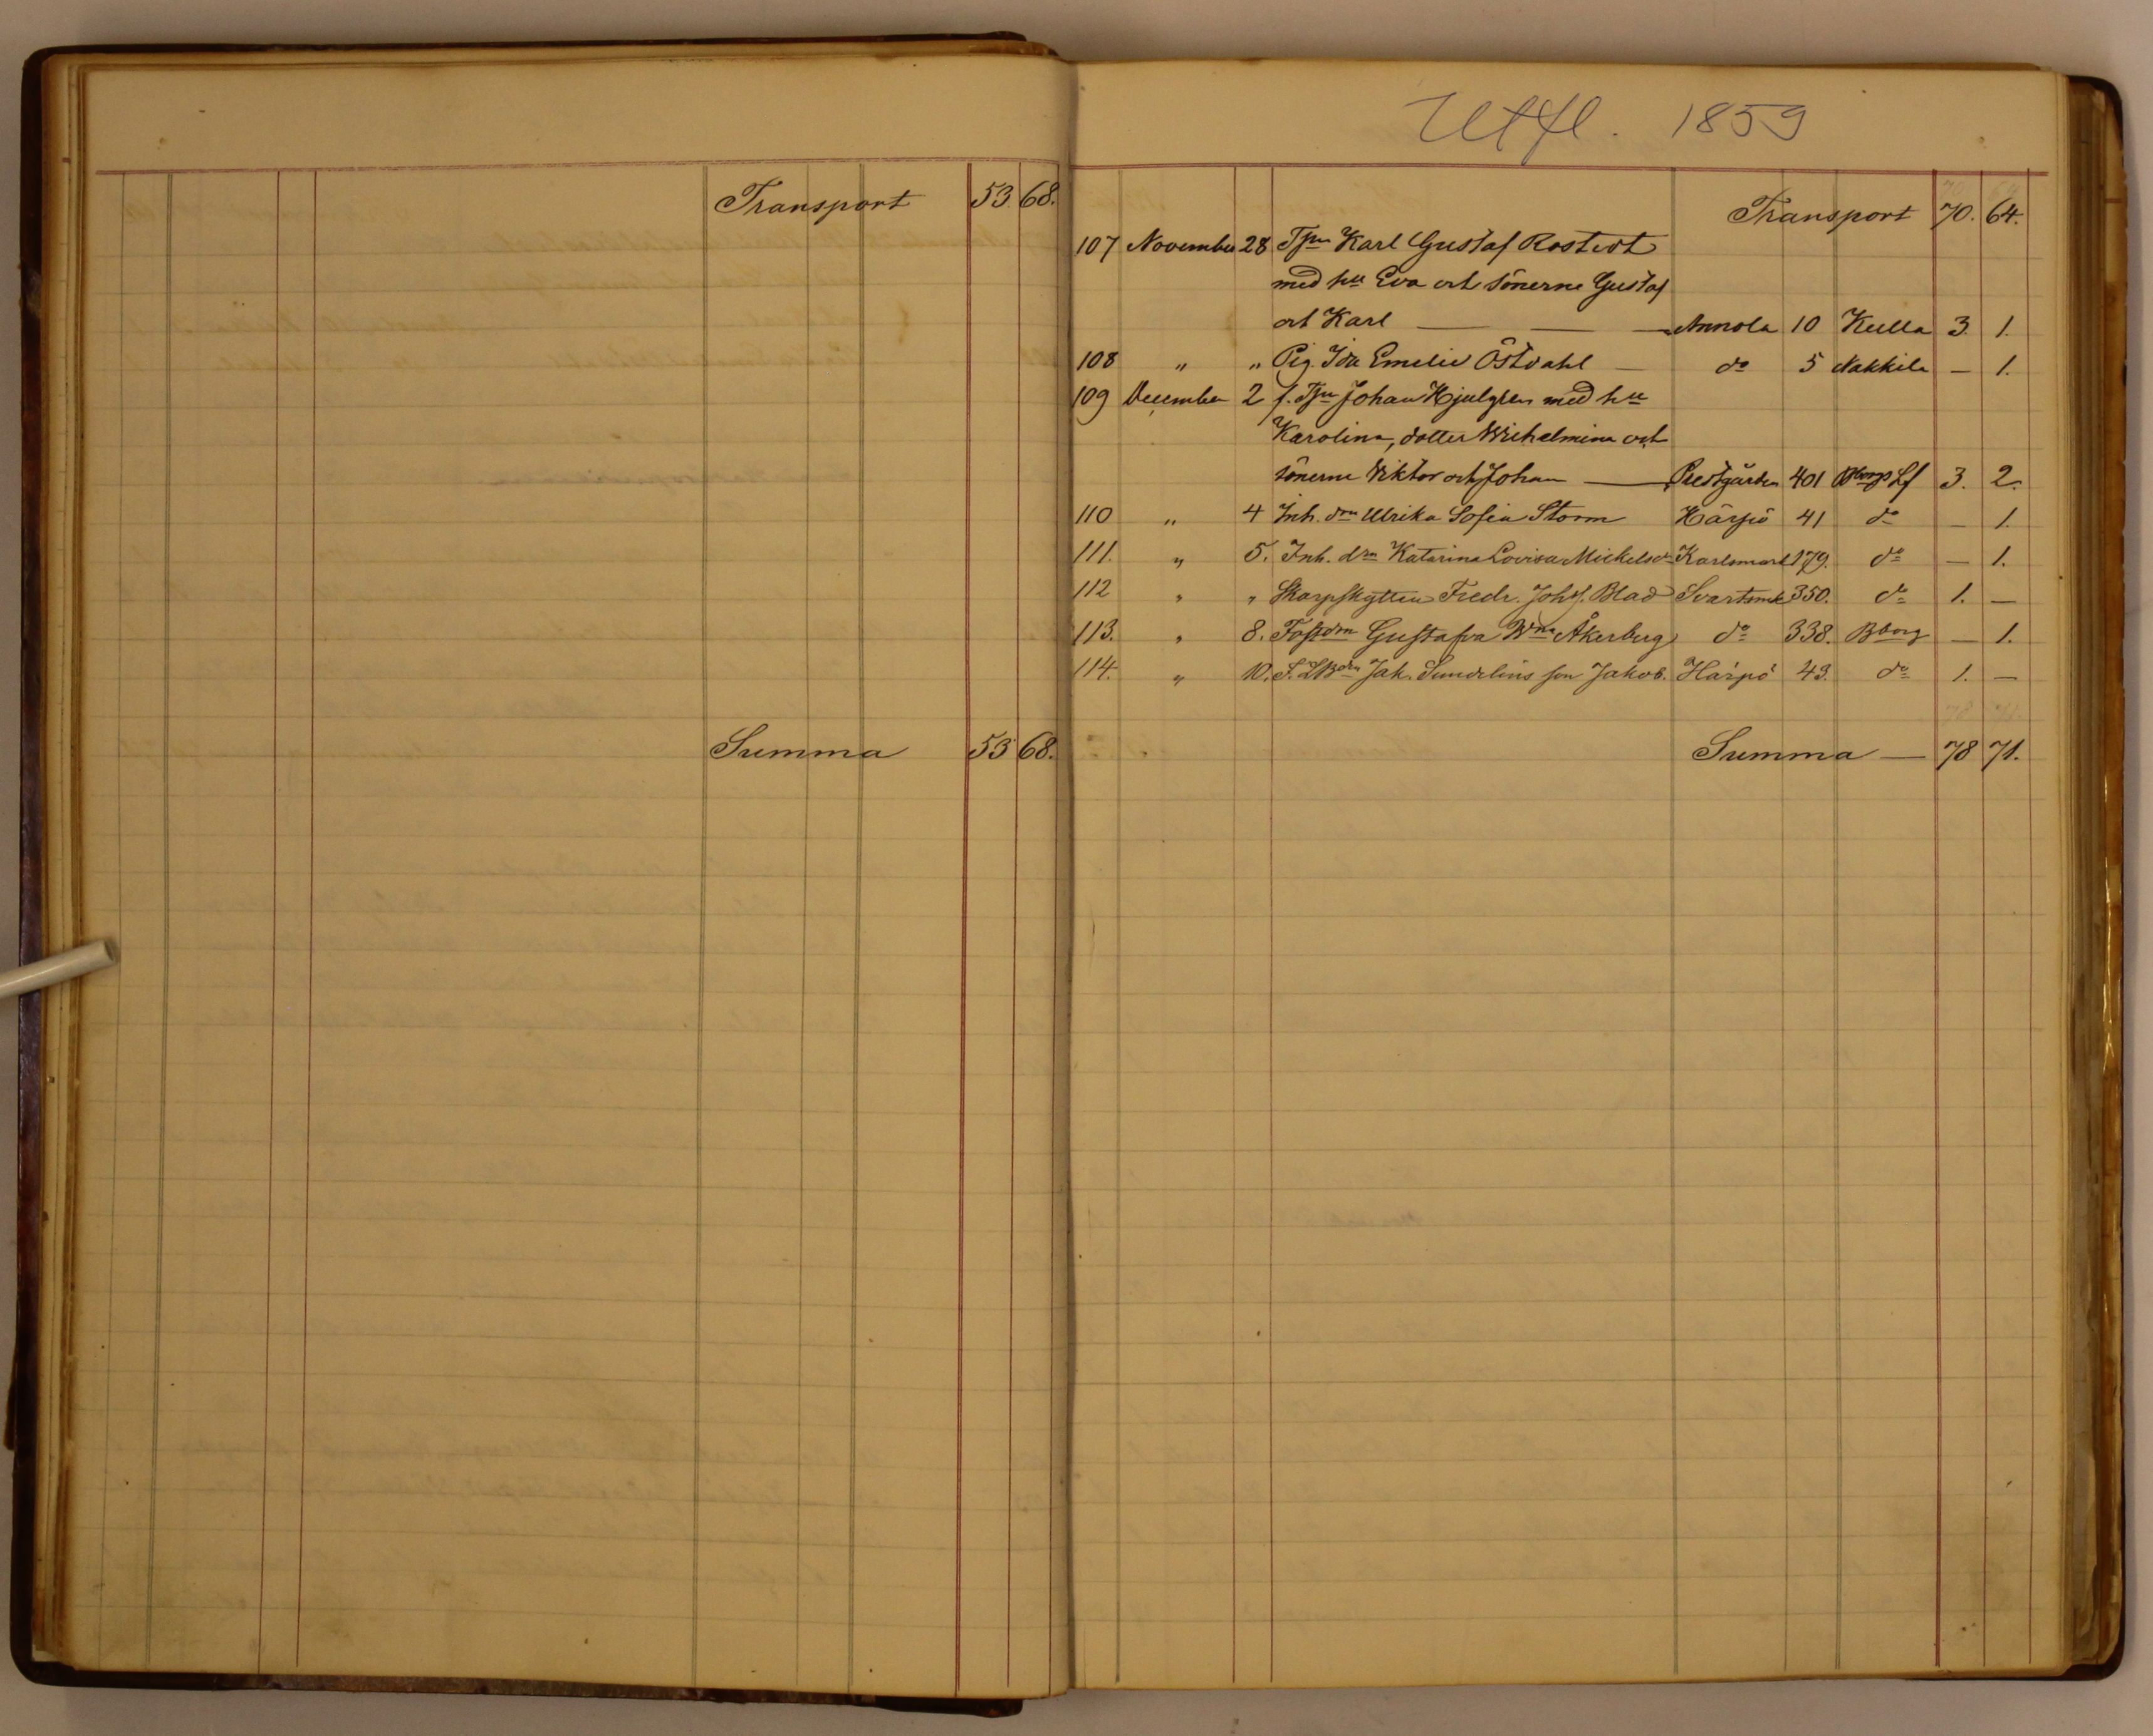 Transport 53. 68.
Summa 53 68.
Utfl. 1859
Transport 70. 64.
107 November 28 Tjn Karl Gustaf Rostedt
med hu Eva och sönerne Gustaf
och Karl — — — Annola 10 Kulla 3. 1.
108 " " Pig. Ida Emelie Östdahl — do 5 Nakkila — 1.
109 December 2 f. Tjn Johan Hjulgren med hu
Karolina, dotter Wilhelmina och
sönerne Viktor och Johan — Prestgården 401 Bborgs Lf 3. 2.
110 " 4 Inh. drn Ulrika Sofia Storm Härpö 41 do — 1.
111. " 5. Inh. drn Katarina Lovisa Mickelsdr Karlsmark 179. do — 1.
112 " " Skarpskytten Fredr. Johs. Blad Svartsmk 350. do 1. —
113. " 8. Fostdrn Gustafva Wna Åkerberg do 338. Bborg — 1.
114. " 10. S. LBdn Jak. Sundelins son Jakob. Härpö 43. do 1. —
Summa — 78 71.